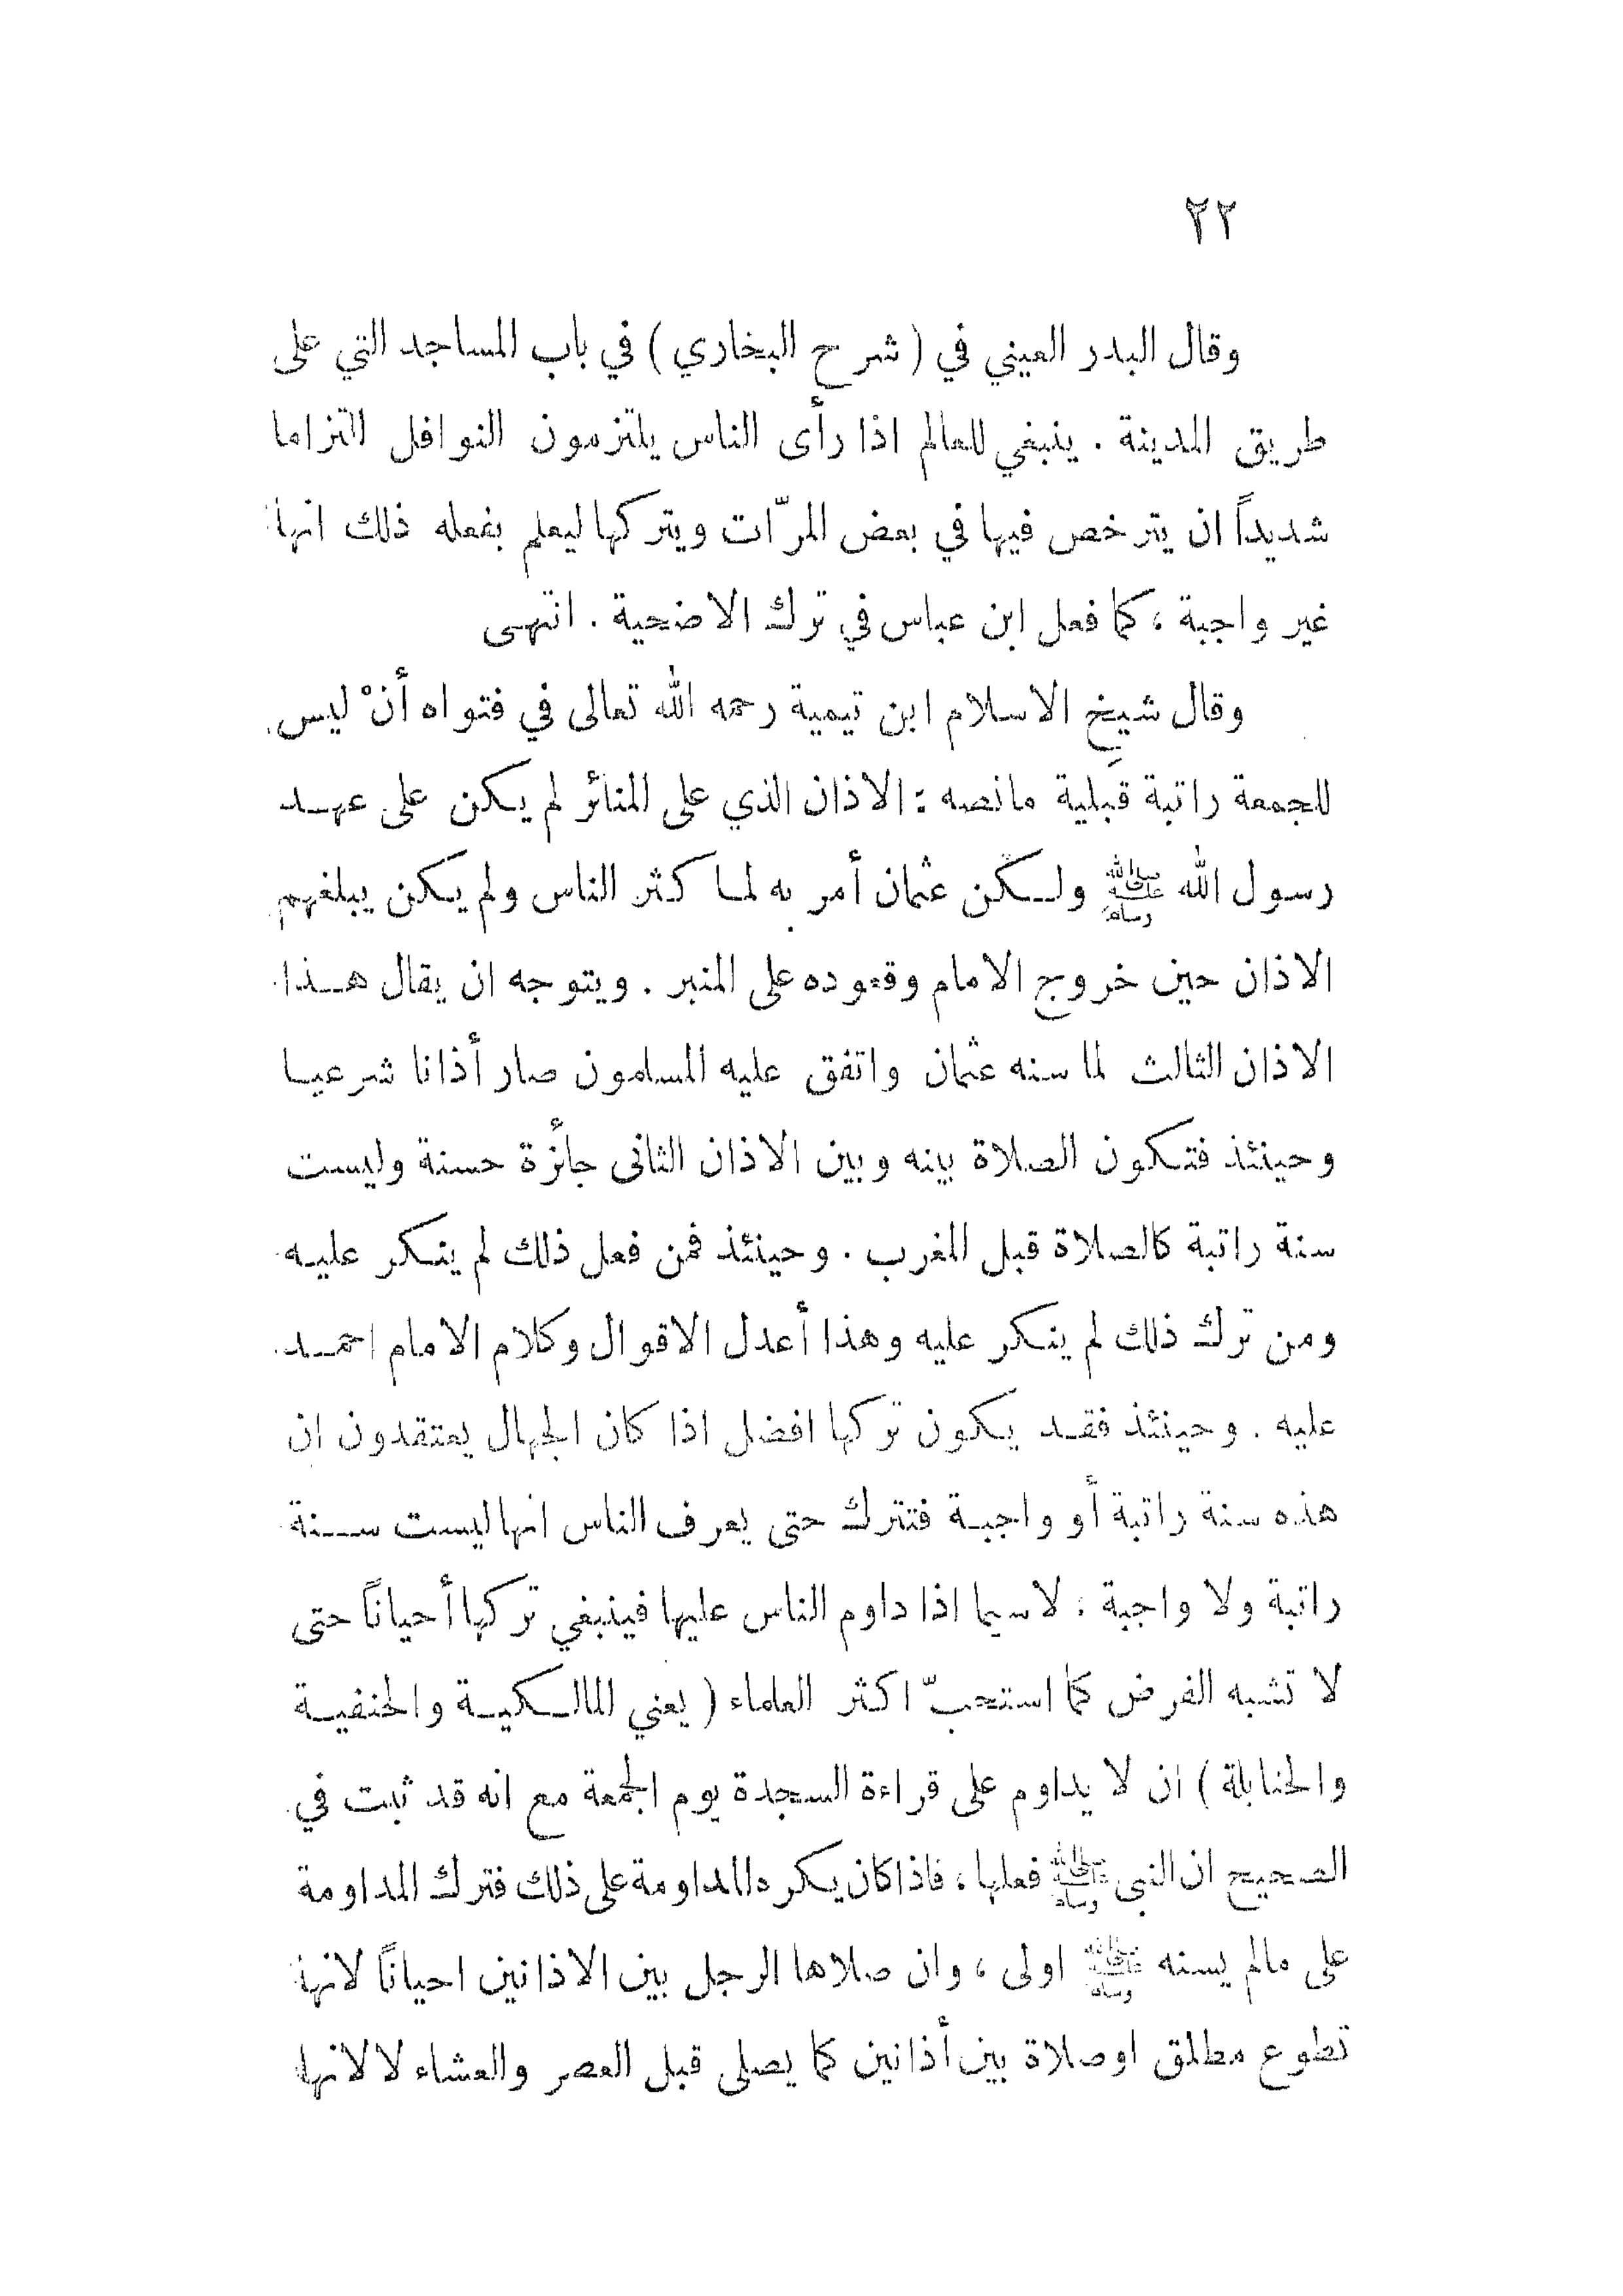 ٢٢
وقال البدر العيني في ( شرح البخاري ) في باب المساجد التي على
طريق المدينة . ينبغي للعالم اذا رأى الناس يلتزمون النوافل التزاما
شديداً ان يترخص فيها في بعض المرّات ويتركها ليعلم بفعله ذلك انها
غير واجبة ، كما فعل ابن عباس في ترك الاضحية . انتهى
وقال شيخ الاسلام ابن تيمية رحمه الله تعالى في فتواه أنْ ليس
للجمعة راتبة قبلية مانصه : الاذان الذي على المنائر لم يكن على عهد
رسول الله ﷺ ولكن عثمان أمر به لما كثر الناس ولم يكن يبلغهم
الاذان حين خروج الامام وقعوده على المنبر . ويتوجه ان يقال هذا
الاذان الثالث لما سنه عثمان واتفق عليه المسلمون صار أذانا شرعيا
وحينئذ فتكون الصلاة بينه وبين الاذان الثانى جائزة حسنة وليست
سنة راتبة كالصلاة قبل المغرب . وحينئذ فمن فعل ذلك لم ينكر عليه
ومن ترك ذلك لم ينكر عليه وهذا أعدل الاقوال وكلام الامام احمد
عليه . وحينئذ فقد يكون تركها افضل اذا كان الجهال يعتقدون ان
هذه سنة راتبة أو واجبة فتترك حتى يعرف الناس انها ليست سنة
راتبة ولا واجبة ، لاسيما اذا داوم الناس عليها فينبغي تركها أحياناً حتى
لا تشبه الفرض كما استحبّ اكثر العلماء ( يعني المالكية والحنفية
والحنابلة ) ان لا يداوم على قراءة السجدة يوم الجمعة مع انه قد ثبت في
الصحيح ان النبى ﷺ فعلها ، فاذا كان يكره المداومة على ذلك فترك المداومة
على مالم يسنه ﷺ اولى ، وان صلاها الرجل بين الاذانين احياناً لانها
تطوع مطلق او صلاة بين أذانين كما يصلى قبل العصر والعشاء لا لانها